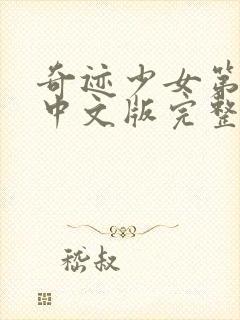 奇迹少女第
中文版完整
嵇叔